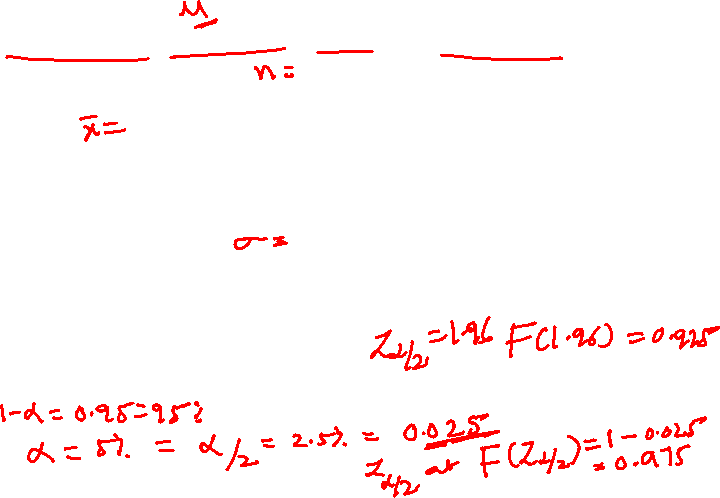 μ
n=
x̄=
σ=
Z_{α/2}=1.96 F(1.96) = 0.975
1-α = 0.95=95%
α = 5% = α/2 = 2.5% = 0.025
Z_{α/2} at F(Z_{α/2}) = 1 - 0.025
= 0.975